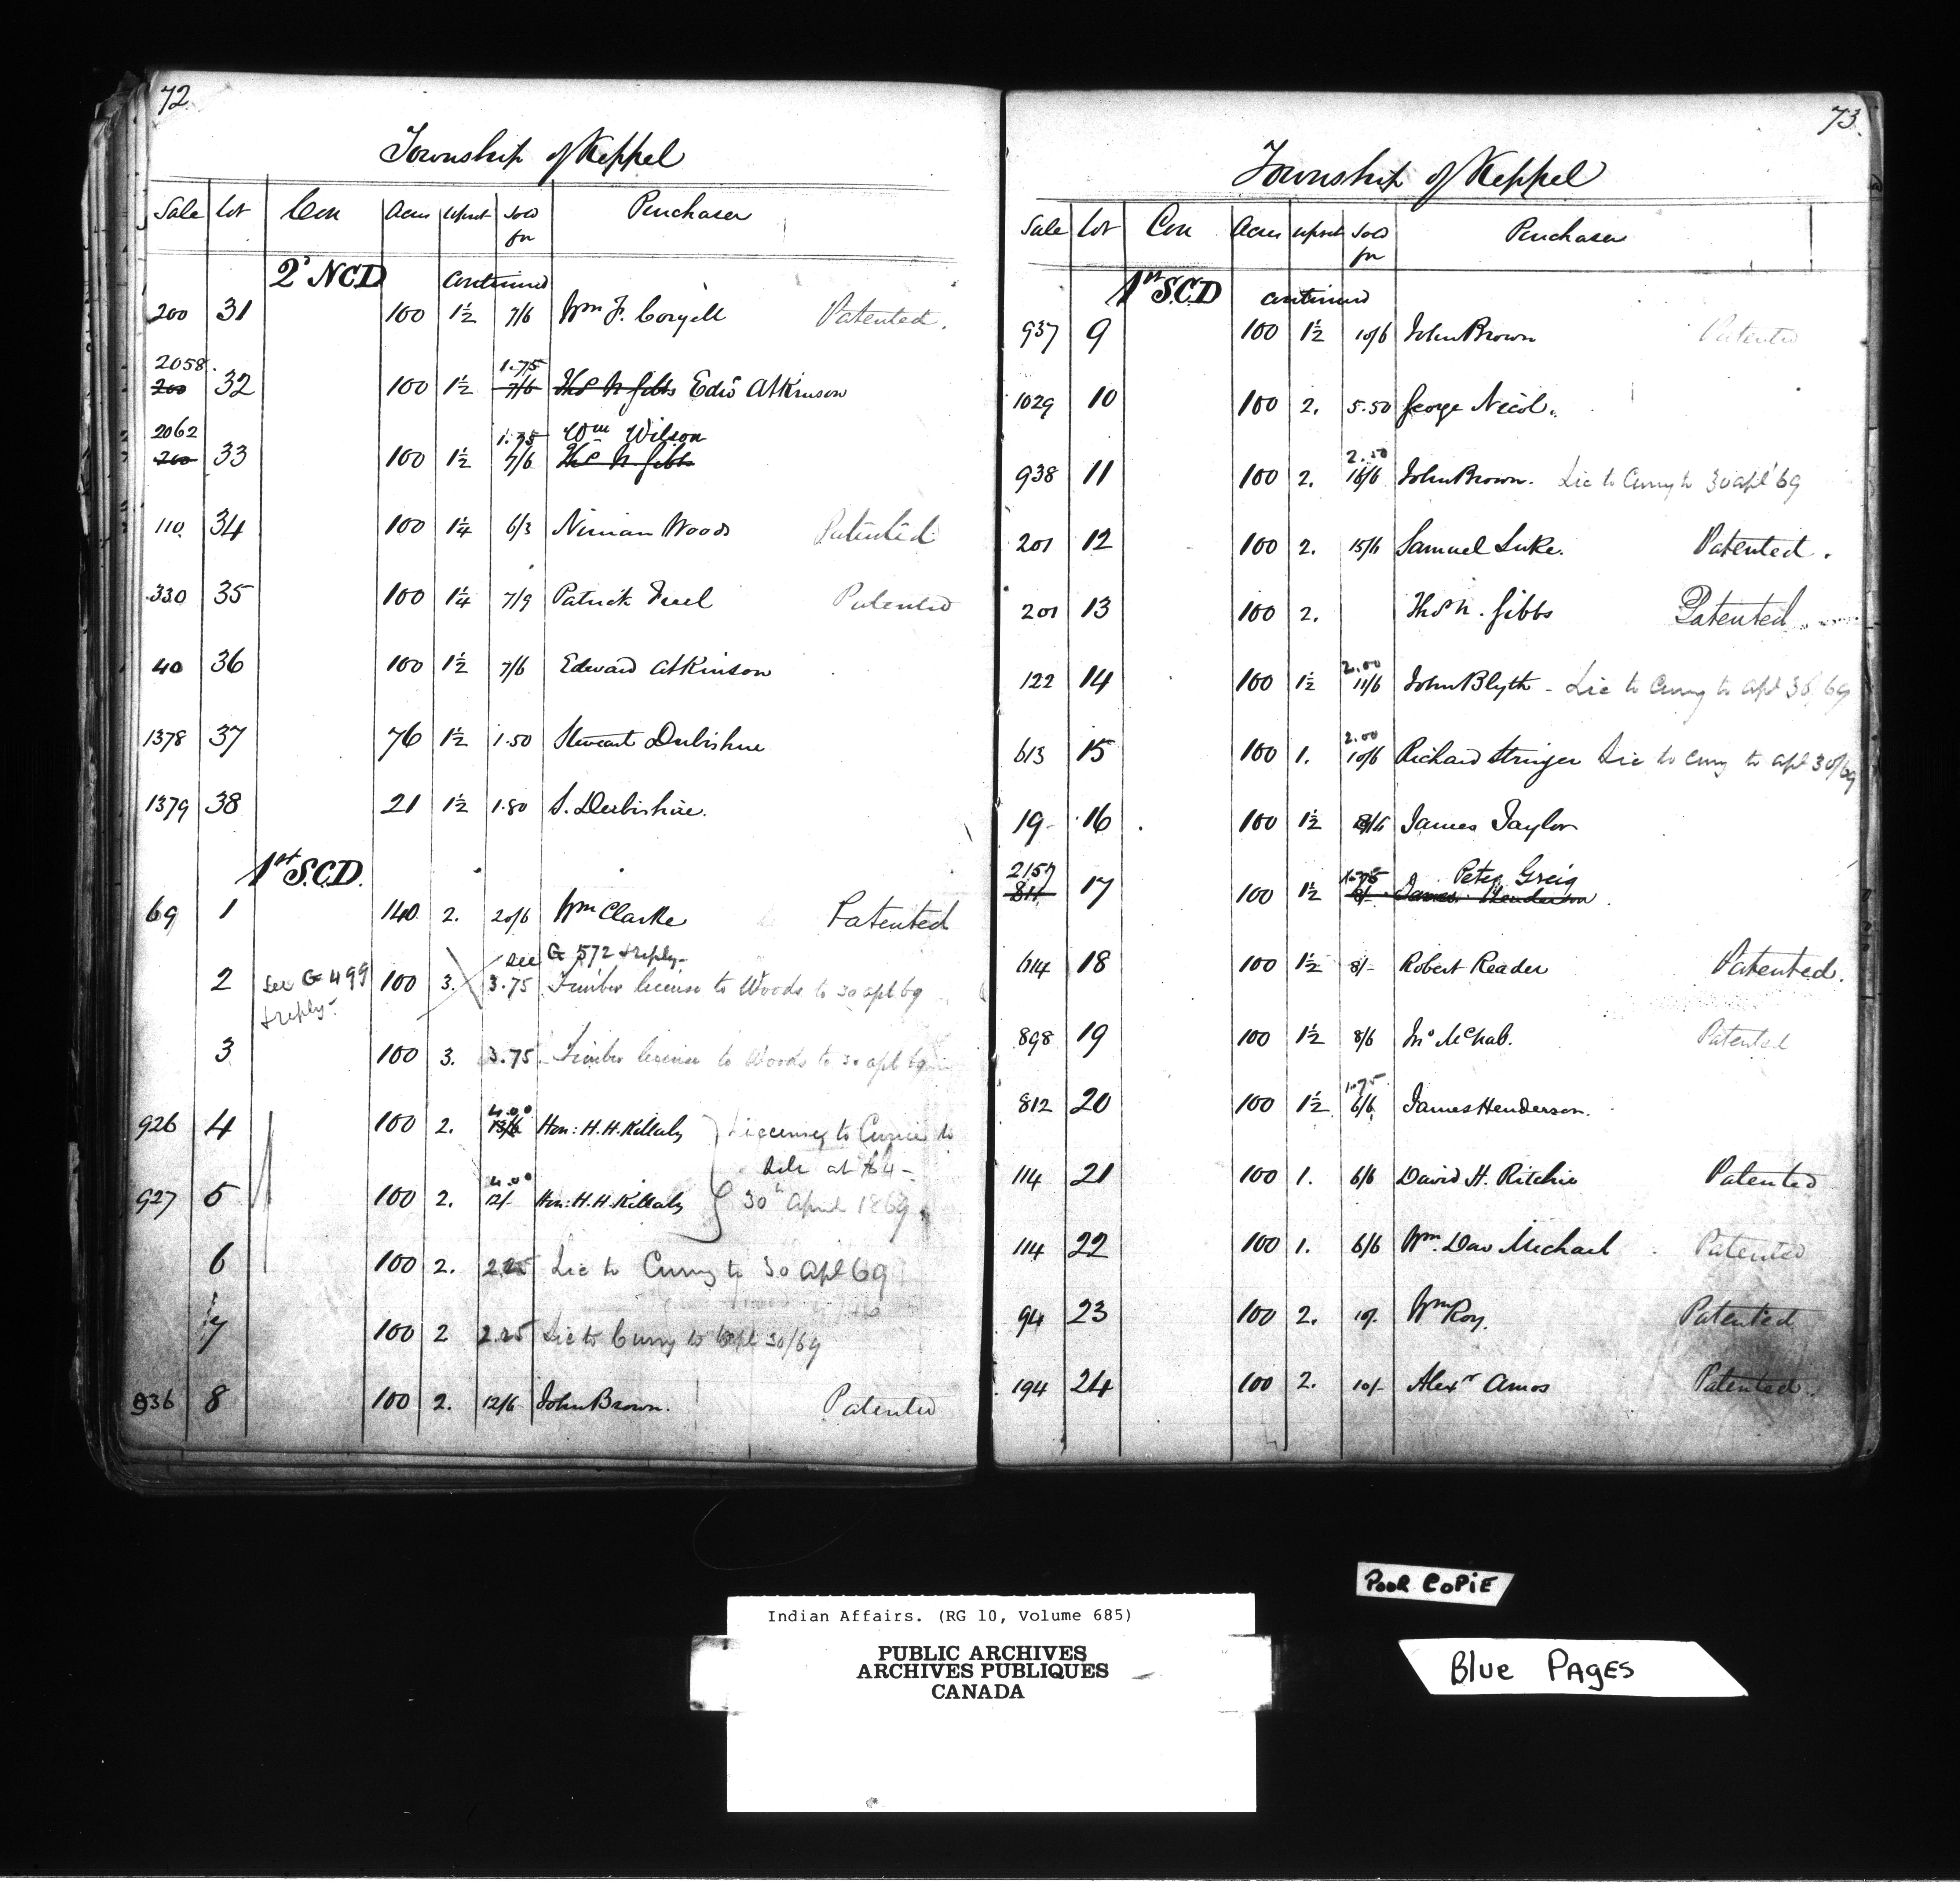 72
Township of Keppel
Sale Lot Con Acres Upset Sold for Purchaser
2d NCD continued
200 31 100 1½ 7/6 Wm F. Coryell Patented.
2058 1.75
200 32 100 1½ 7/6 Thos N Gibbs Edwd Atkinson
2062 1.75 Wm Wilson
200 33 100 1½ 7/6 Thos N Gibbs
110 34 100 1¼ 6/3 Ninian Woods Patented
330 35 100 1¼ 7/9 Patrick Patented
40 36 100 1½ 7/6 Edward Atkinson
1378 37 76 1½ 1.50 Stewart Derbishire
1379 38 21 1½ 1.80 S. Derbishire.
1st S.C.D.
69 1 140 2. 20/6 Wm Clarke Patented
see G 572 & reply-
2 see G 499 100 3. 3.75 Timber license to Woods to 30 apl 69
& reply-
3 100 3. 3.75 Timber license to Woods to 30 apl 69
4.00
926 4 100 2. 13/6 Hon: H.H. Killaly Liccense to Currie to
at $4-
4.00
927 5 100 2. 12/- Hon: H.H. Killaly 30th April 1869.
6 100 2. 2.25 Lic to Curry to 30 apl 69
7 100 2 2.25 Lic to Curry to Apl 30/69
936 8 100 2. 12/6 John Brown. Patented
73.
Township of Keppel
Sale Lot Con Acres Upset Sold for Purchaser
1st S.C.D continued
937 9 100 1½ 10/6 John Brown Patented
1029 10 100 2. 5.50 George Nicol.
2.50
938 11 100 2. 16/6 John Brown. Lic to Curry to 30 apl '69
201 12 100 2. 15/6 Samuel Luke. Patented.
201 13 100 2. Thos N. Gibbs Patented
2.00
122 14 100 1½ 11/6 John Blyth - Lic to Curry to Apl 30/69
2.00
613 15 100 1. 10/6 Richard Stringer Lic to Curry to Apl 30/69
19 16 100 1½ James Taylor
2157 1.75 Peter Greig
811 17 100 1½ 8/- James Henderson
614 18 100 1½ 8/- Robert Reader Patented.
898 19 100 1½ 8/6 Jno McNab. Patented
1.75
812 20 100 1½ 6/6 James Henderson.
114 21 100 1. 6/6 David H. Ritchie Patented
114 22 100 1. 6/6 Wm. Dav Michael Patented
94 23 100 2. 10/- Wm Roy. Patented
194 24 100 2. 10/- Alexr Amos Patented.
POOR COPIE
Indian Affairs. (RG 10, Volume 685)
PUBLIC ARCHIVES
ARCHIVES PUBLIQUES
CANADA
Blue PAgES